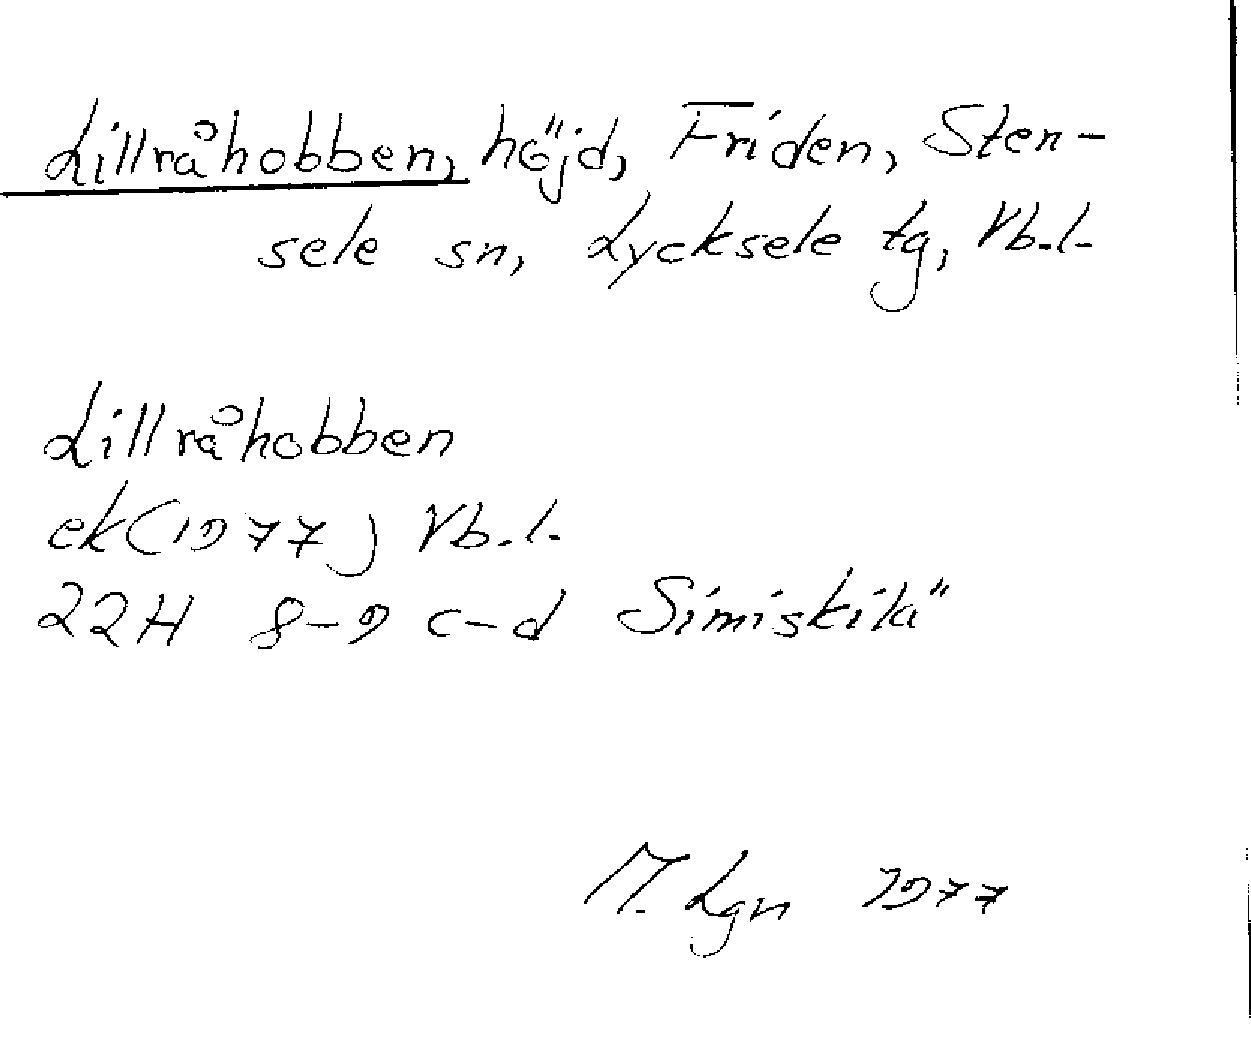 Lillråhobben, höjd, Friden, Sten-
sele sn, Lycksele tg, Vb.l.
Lillråhobben
ek (1977) Vb.l.
22H 8-9 c-d Simiskilä
M. Lgn 1977